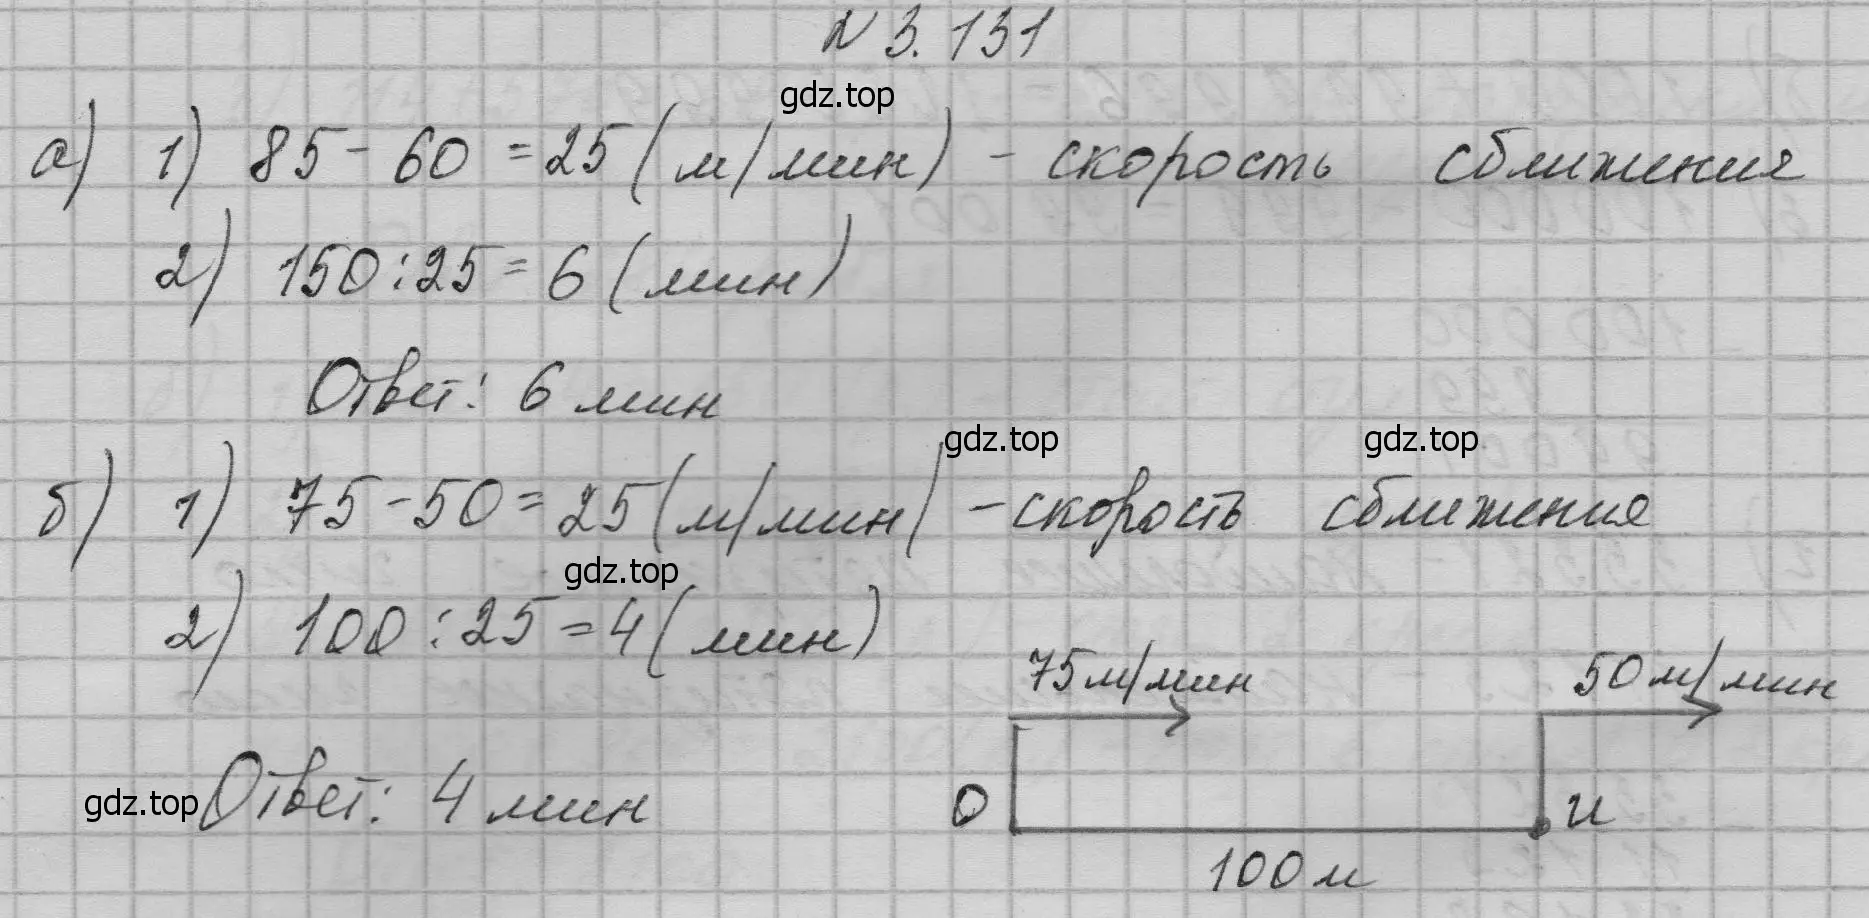 № 3.131
gdz.top
а) 1) 85 - 60 = 25 (м/мин) - скорость сближения
2) 150 : 25 = 6 (мин)
Ответ: 6 мин
gdz.top gdz.top
б) 1) 75 - 50 = 25 (м/мин) - скорость сближения
gdz.top
2) 100 : 25 = 4 (мин)
75 м/мин 50 м/мин
gdz.top Ответ: 4 мин О И
100 м